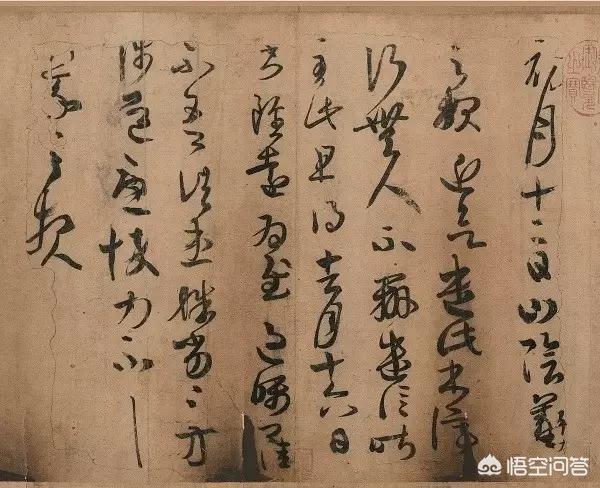 初月十二日山陰羲
之報近欲遣此書停
行無人不辦遣信昨
至此且得去月十六日
書雖遠為慰過囑卿佳
不吾諸患殊劣殊劣方
涉道憂悴力不具
羲之報
悟空问答